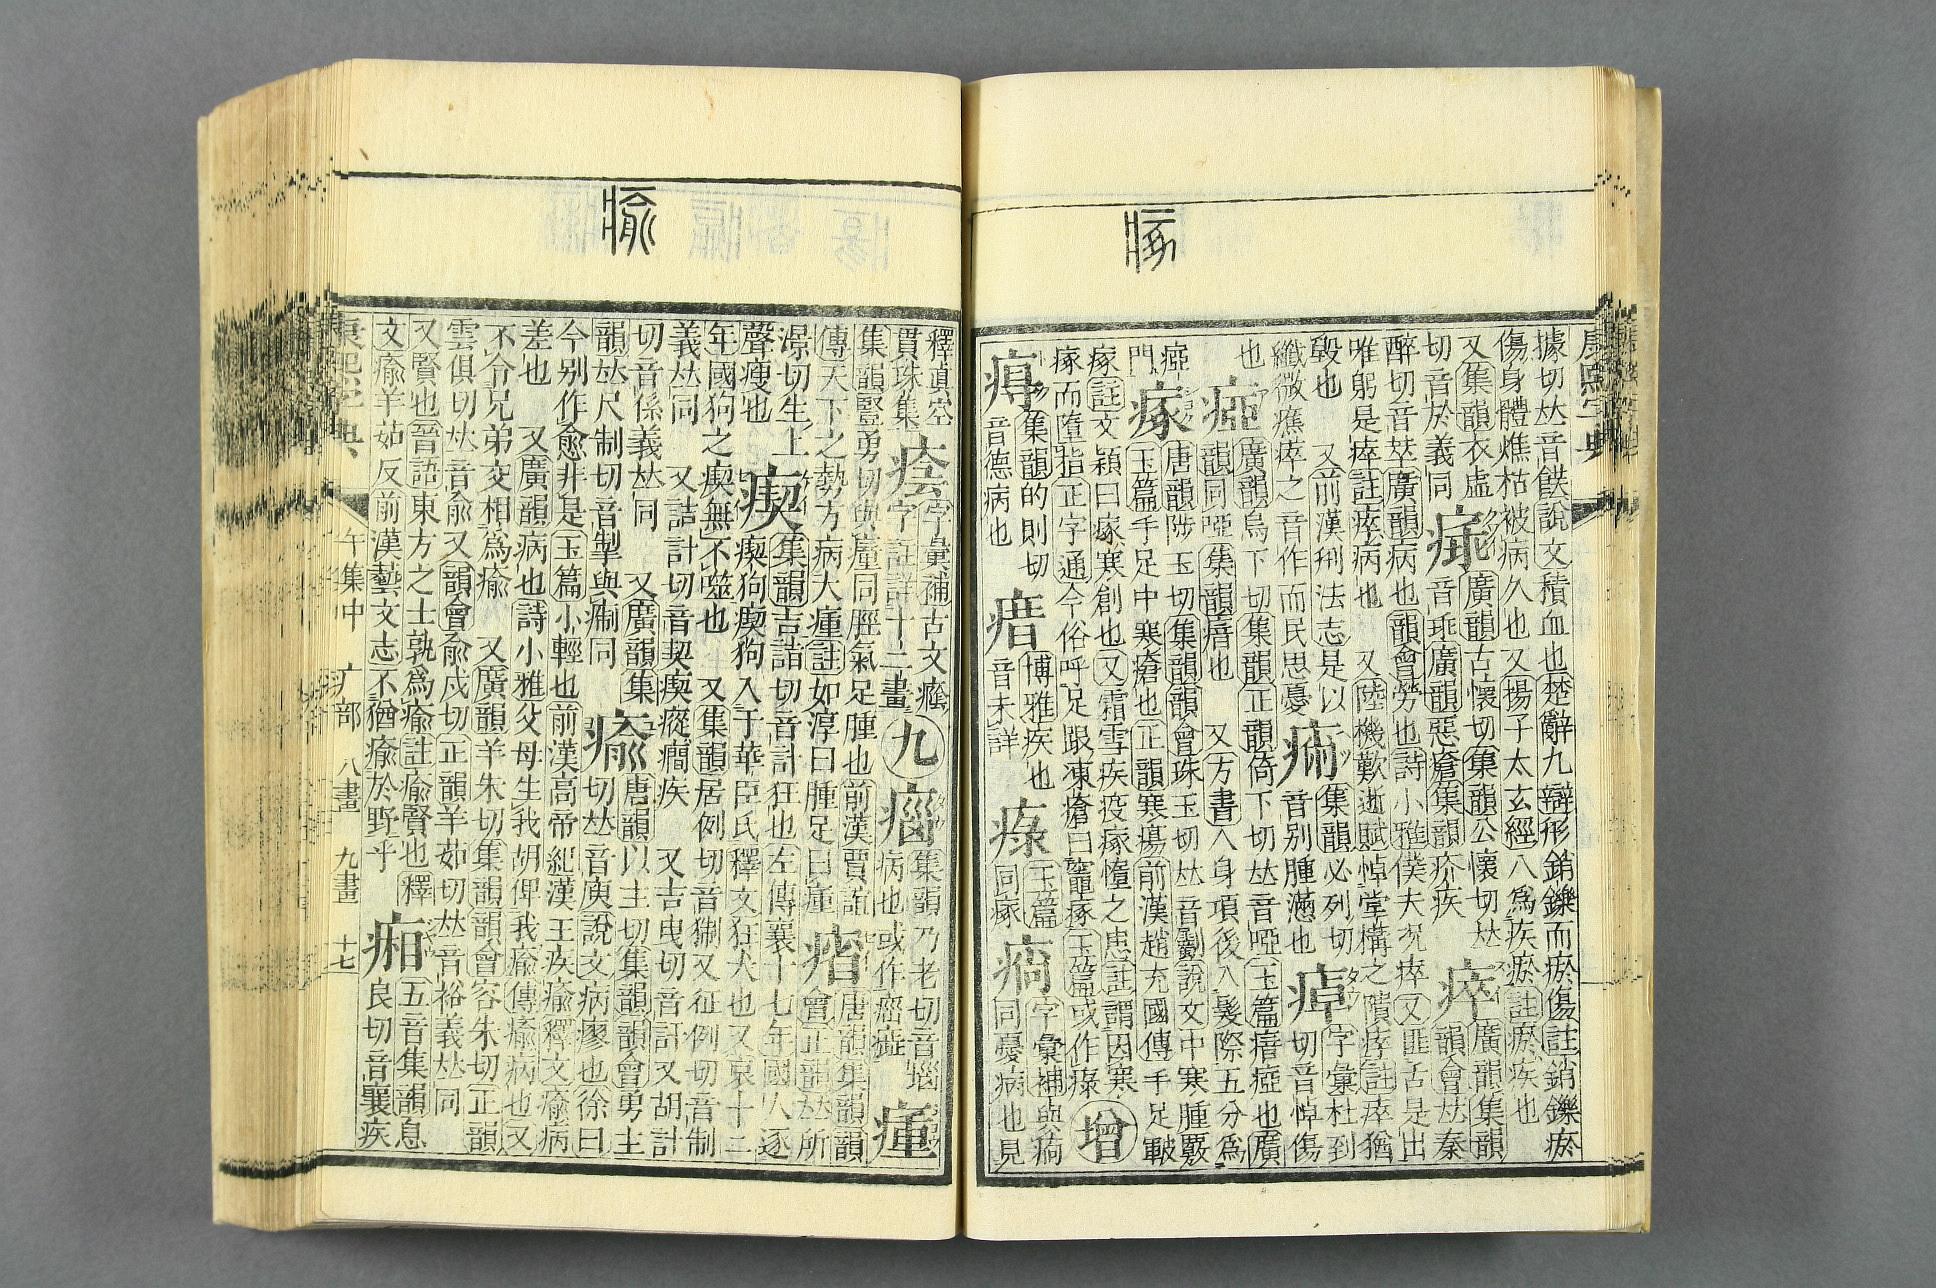 瘃
康熙字典
據切𠀤音飫說文積血也楚辭九辯形銷鑠而瘀傷註銷鑠瘀
傷身體燋枯被病久也又揚子太玄經八爲疾瘀註瘀疾也
又集韻衣虛
切音於義同
廣韻古懷切集韻公懷切𠀤
音乖廣韻惡瘡集韻疥疾
瘁
廣韻集韻
韻會𠀤秦
醉切音萃廣韻病也韻會勞也詩小雅僕夫况瘁又匪舌是出
唯躬是瘁註瘁病也 又陸機歎逝賦悼堂構之隤瘁註瘁猶
毀也 又前漢刑法志是以
纖微癄瘁之音作而民思憂
集韻必列切
音別腫滿也
字彙杜到
切音悼傷
也
瘂
廣韻烏下切集韻正韻倚下切𠀤音啞玉篇瘖瘂也廣
韻同啞集韻瘖也 又方書人身項後入髮際五分爲
瘂
門
瘃
唐韻陟玉切集韻韻會珠玉切𠀤音斸說文中寒腫覈
玉篇手足中寒瘡也正韻寒瘍前漢趙充國傳手足皸
瘃註文穎曰瘃寒創也又霜雪疾疫瘃墮之患註謂因寒
瘃而墮指正字通今俗呼足跟凍瘡曰竈瘃玉篇或作瘯
增
集韻的則切
音德病也
博雅疾也
音未詳
玉篇
同瘃
字彙補與痾
同憂病也見
瘉
釋眞空
貫珠集
字彙補古文癊
字註詳十二畫
九
集韻乃老切音惱
病也或作
瘇
集韻豎勇切與尰同脛氣足腫也前漢賈誼
傳天下之勢方病大瘇註如淳曰腫足曰瘇
唐韻集韻韻
會正韻𠀤所
景切生上
聲瘦也
瘈
集韻吉詣切音計狂也左傳襄十七年國人逐
瘈狗瘈狗入于華臣氏釋文狂犬也又哀十二
年國狗之瘈無不噬也 又集韻居例切音猘又征例切音制
義𠀤同 又詰計切音契瘈瘲癇疾 又吉曳切音訐又胡計
切音係義𠀤同 又廣韻集
韻𠀤尺制切音掣與痸同
瘉
唐韻以主切集韻韻會勇主
切𠀤音庾說文病瘳也徐曰
今別作愈非是玉篇小輕也前漢高帝紀漢王疾瘉釋文瘉病
差也 又廣韻病也詩小雅父母生我胡俾我瘉傳瘉病也又
不令兄弟交相爲瘉 又廣韻羊朱切集韻韻會容朱切正韻
雲俱切𠀤音兪又韻會兪戍切正韻羊茹切𠀤音裕義𠀤同
又賢也晉語東方之士孰爲瘉註瘉賢也釋
文瘉羊茹反前漢藝文志不猶瘉於野乎
五音集韻息
良切音襄疾
康熙字典
午集中
疒部
八畫
九畫
十七